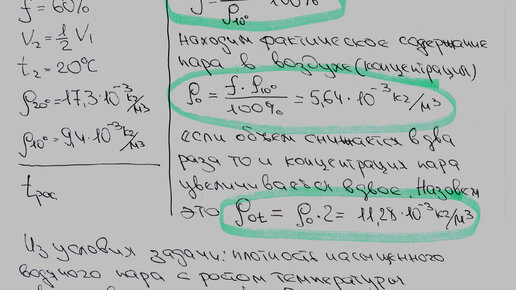 f = 60%
V₂ = ½ V₁
t₂ = 20°C
ρ₂₀° = 17,3·10⁻³ кг/м³
ρ₁₀° = 9,4·10⁻³ кг/м³
tрос
ρ₁₀° 100%
находим фактическое содержание
пара в воздухе (концентрация)
ρ₀ = f·ρ₁₀° / 100% = 5,64·10⁻³ кг/м³
если объем снижается в два
раза то и концентрация пара
увеличивается вдвое. Назовем
это ρot = ρ₀·2 = 11,28·10⁻³ кг/м³
Из условия задачи: плотность насыщенного
водяного пара с ростом температуры